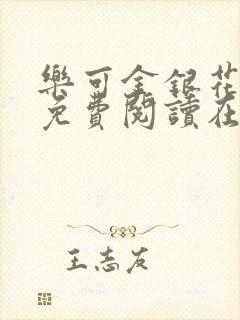 樂可金銀花
免費閱讀在
王志友